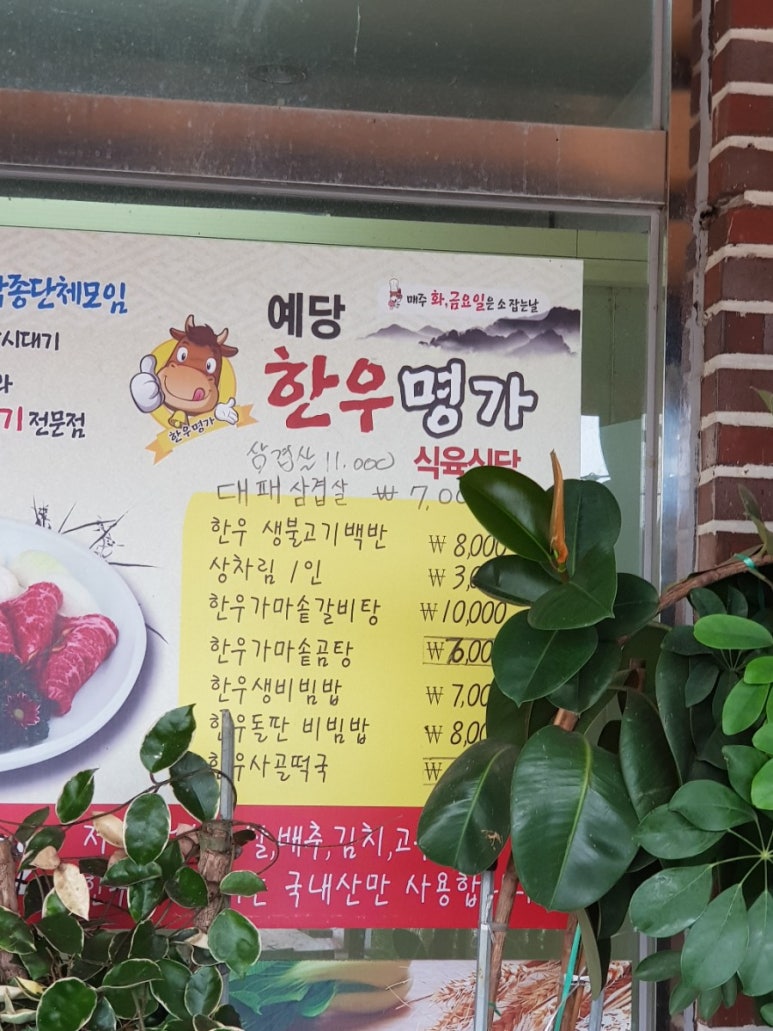 각종단체모임
시대기
와
기 전문점
매주 화,금요일은 소 잡는날
예당
한우명가
한우명가
삼겹살 11.000
식육식당
대패삼겹살 ₩ 7,00
한우 생불고기백반 ₩ 8,000
상차림 1인 ₩ 3,0
한우가마솥갈비탕 ₩10,000
한우가마솥곰탕 ₩ ,00
한우생비빔밥 ₩ 7,00
한우돌판 비빔밥 ₩ 8,00
한우사골떡국 ₩
저 ,배추,김치,고
국내산만 사용합